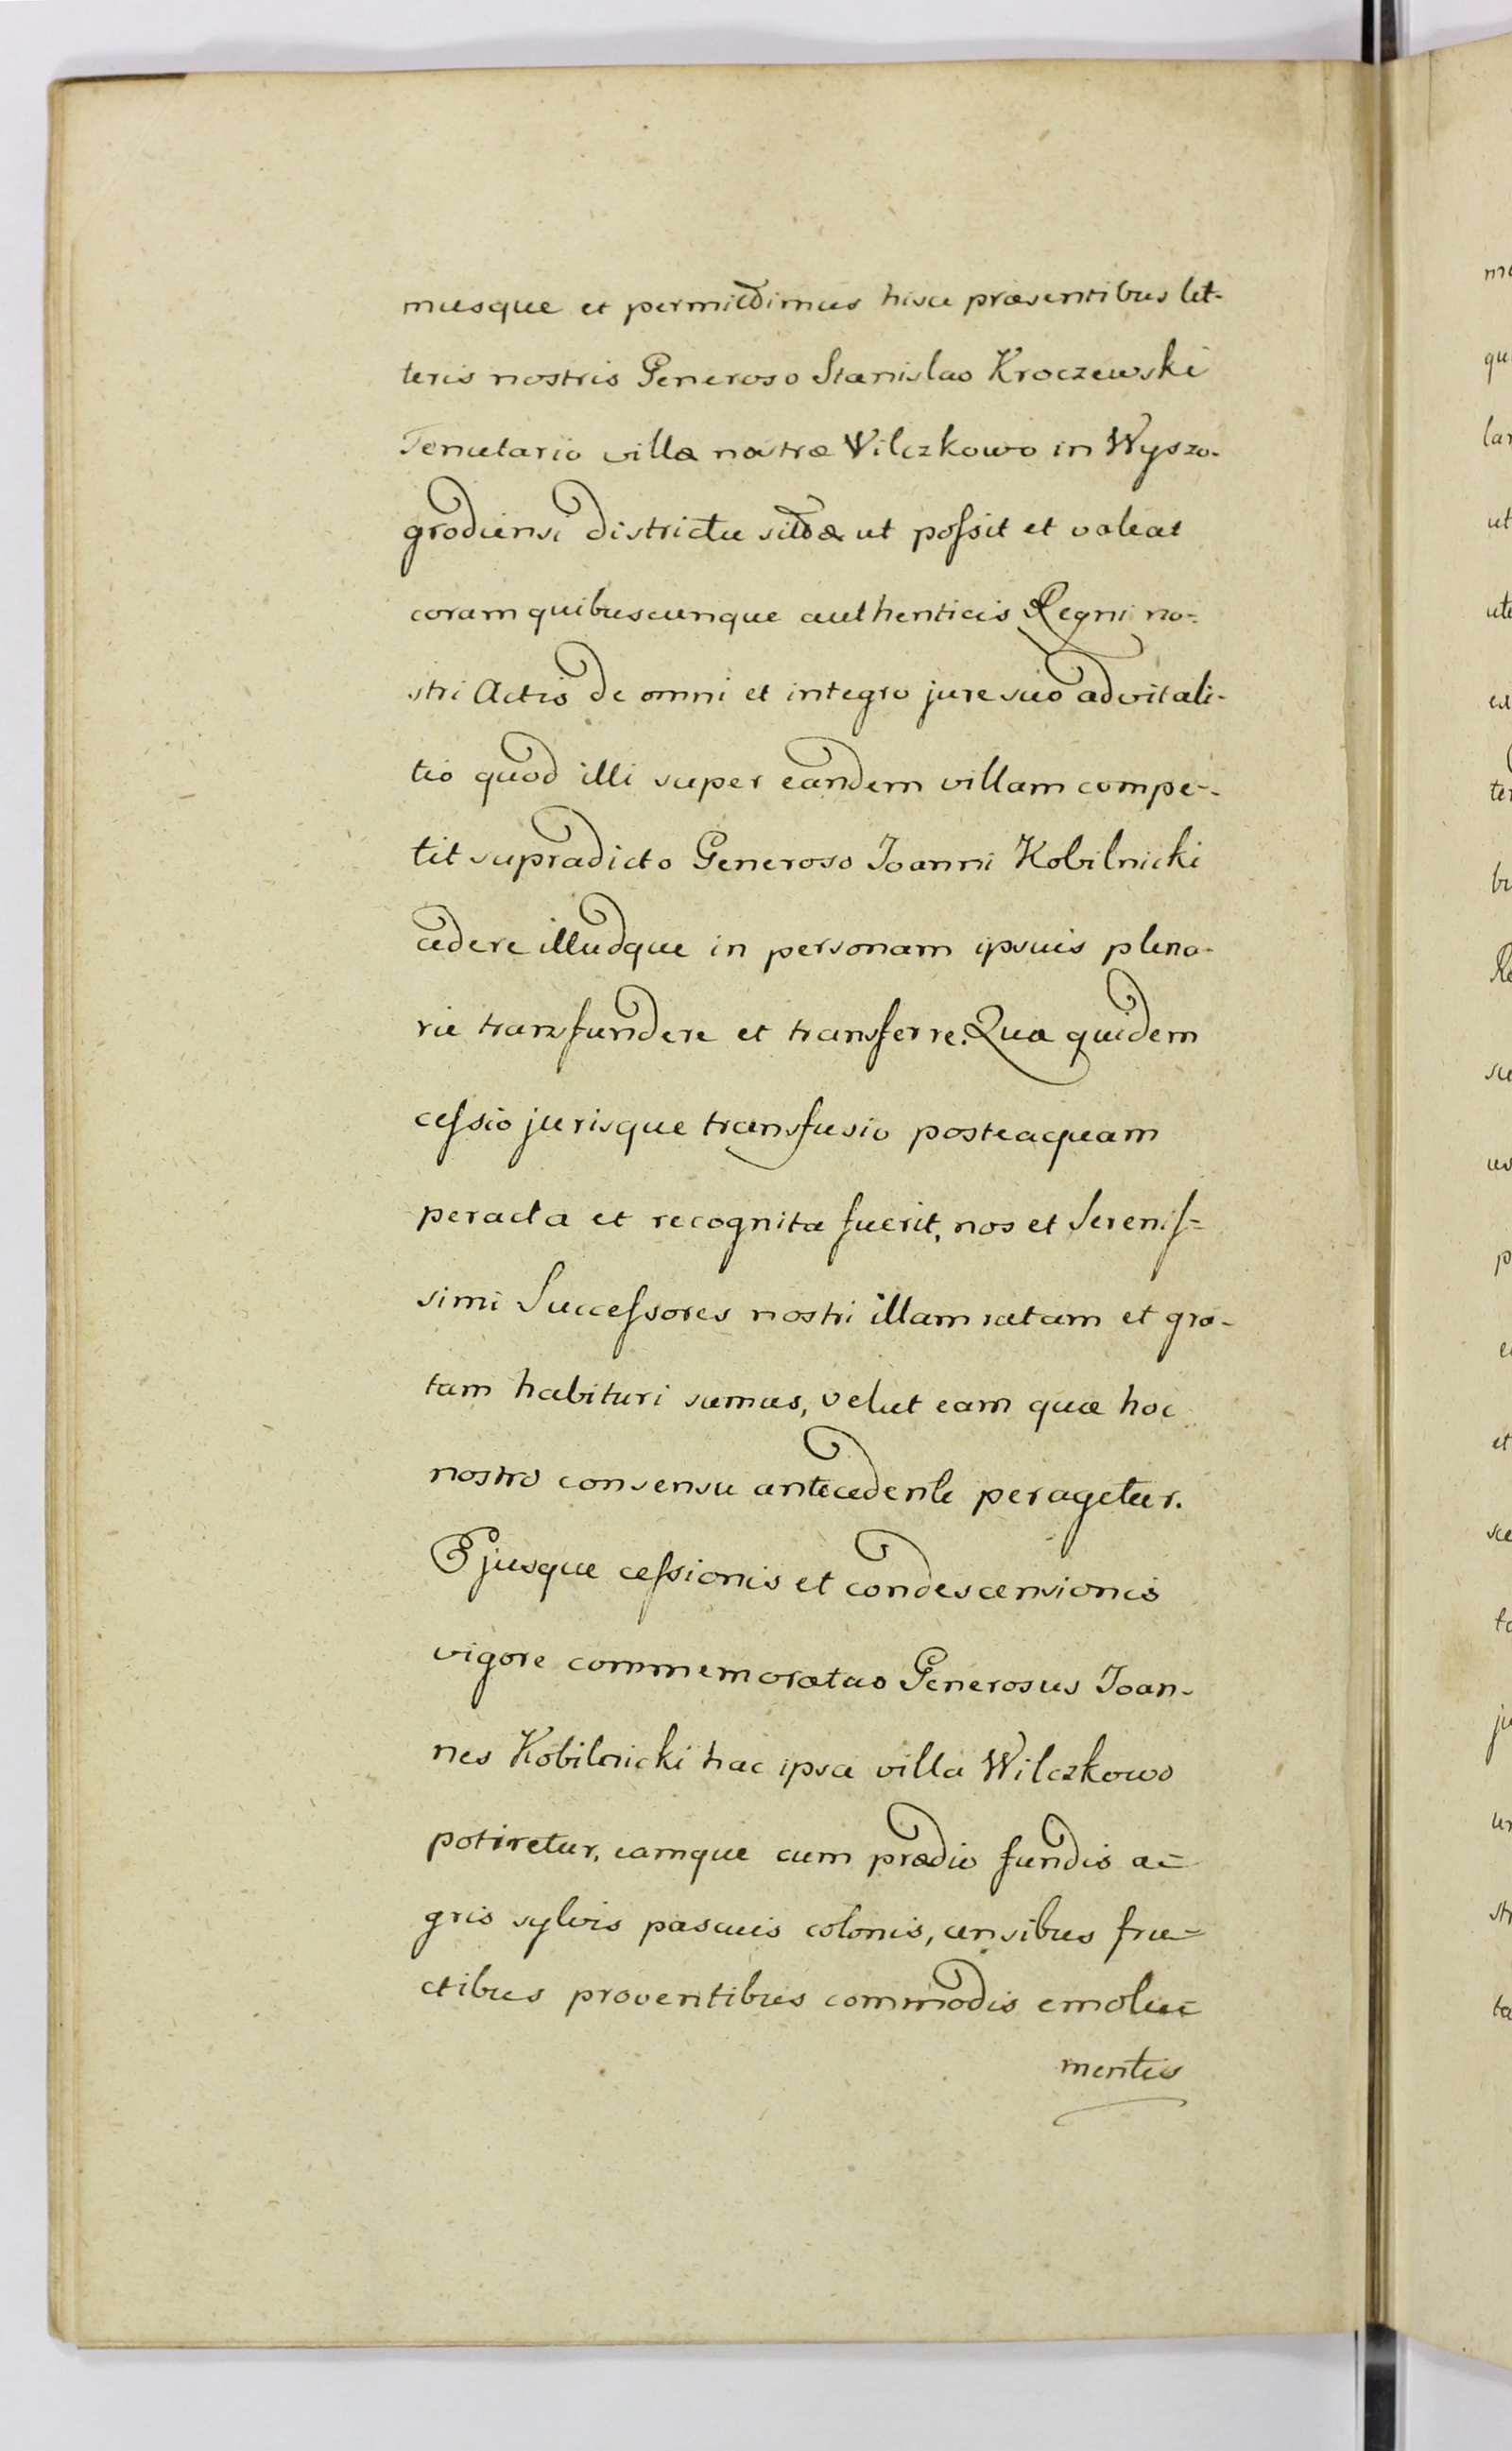 musque et permittimus hisce præsentibus lit-
teris nostris Generoso Stanislao Kroczewski
Tenutario villæ nostræ Wilczkowo in Wyszo-
grodiensi districtu sitæ ut possit et valeat
coram quibuscunque authenticis Regni no-
stri Actis de omni et integro jure suo advitali-
tio quod illi super eandem villam compe-
tit supradicto Generoso Joanni Kobilnicki
cedere illudque in personam ipsius plena-
rie transfundere et transferre. Quæ quidem
cessio jurisque transfusio posteaquam
peracta et recognita fuerit, nos et Serenis-
simi Successores nostri illam ratam et gra-
tam habituri sumus, velut eam quæ hoc
nostro consensu antecedente peragetur.
Ejusque cessionis et condescensionis
vigore commemoratus Generosus Joan-
nes Kobilnicki hac ipsa villa Wilczkowo
potiretur, eamque cum prædio fundis a-
gris sylvis pascuis colonis, censibus fru-
ctibus proventibus commodis emolu-
mentis